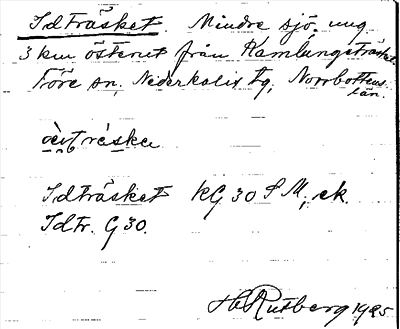 Idträsket. Mindre sjö, ung.
3 km österut från Kamlungeträsket.
Töre sn, Nederkalix tg, Norrbottens
län.
Idträsket KG 30 S M, ek.
Idtr. G 30.
H Rutberg 1925